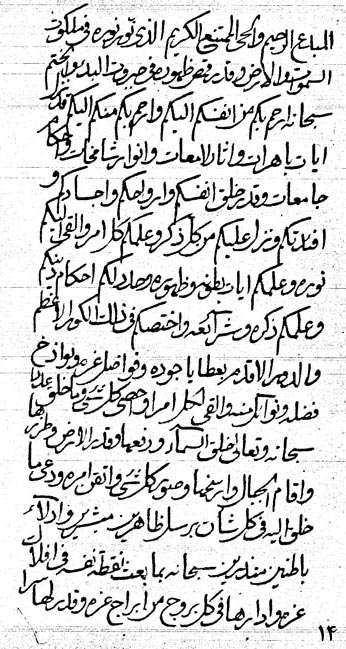 المباع الرحيم والحى الممتنع الكريم الذى نور نوره فى ملكوت
السموات والارض وقدر قمص ظهوره فى جبروت البدء والختم
سبحانه ارحم بكم من انفسكم اليكم واحرى بكم منكم اليكم قد
ايات باهرات واثار لامعات وانوار شامخات واحكام
جامعات وقد خلق انفسكم وارواحكم واجسادكم و
افئدتكم ونزل عليكم من كل ذكر وعلمكم كل امر والقى اليكم
نوره وعلمكم ايات بطونه وظهوره وحادلكم احكام دينكم
وعلمكم ذكره وشرائعه واختصكم فى ذلك الكور الاعظم
والدور الاقدم بعطايا جوده وفواضل عزه وبواذخ
فضله ونوال منه والقى كل امر واحصى كل شىء وما خلق
سبحانه وتعالى خلق السماء ورفعها وقدر الارض وطرزها
واقام الجبال وارسخها وصور كل شىء واتقن امره ودعى ما
خلق اليه فى كل شان برسل ظاهرين مبشرين وادلاء
باطنين منذرين سبحانه بما بعث نقطة نفسه فى افلاك
عزه وادارها فى كل بروج من ابراج عزه وقدر لها
۱۴